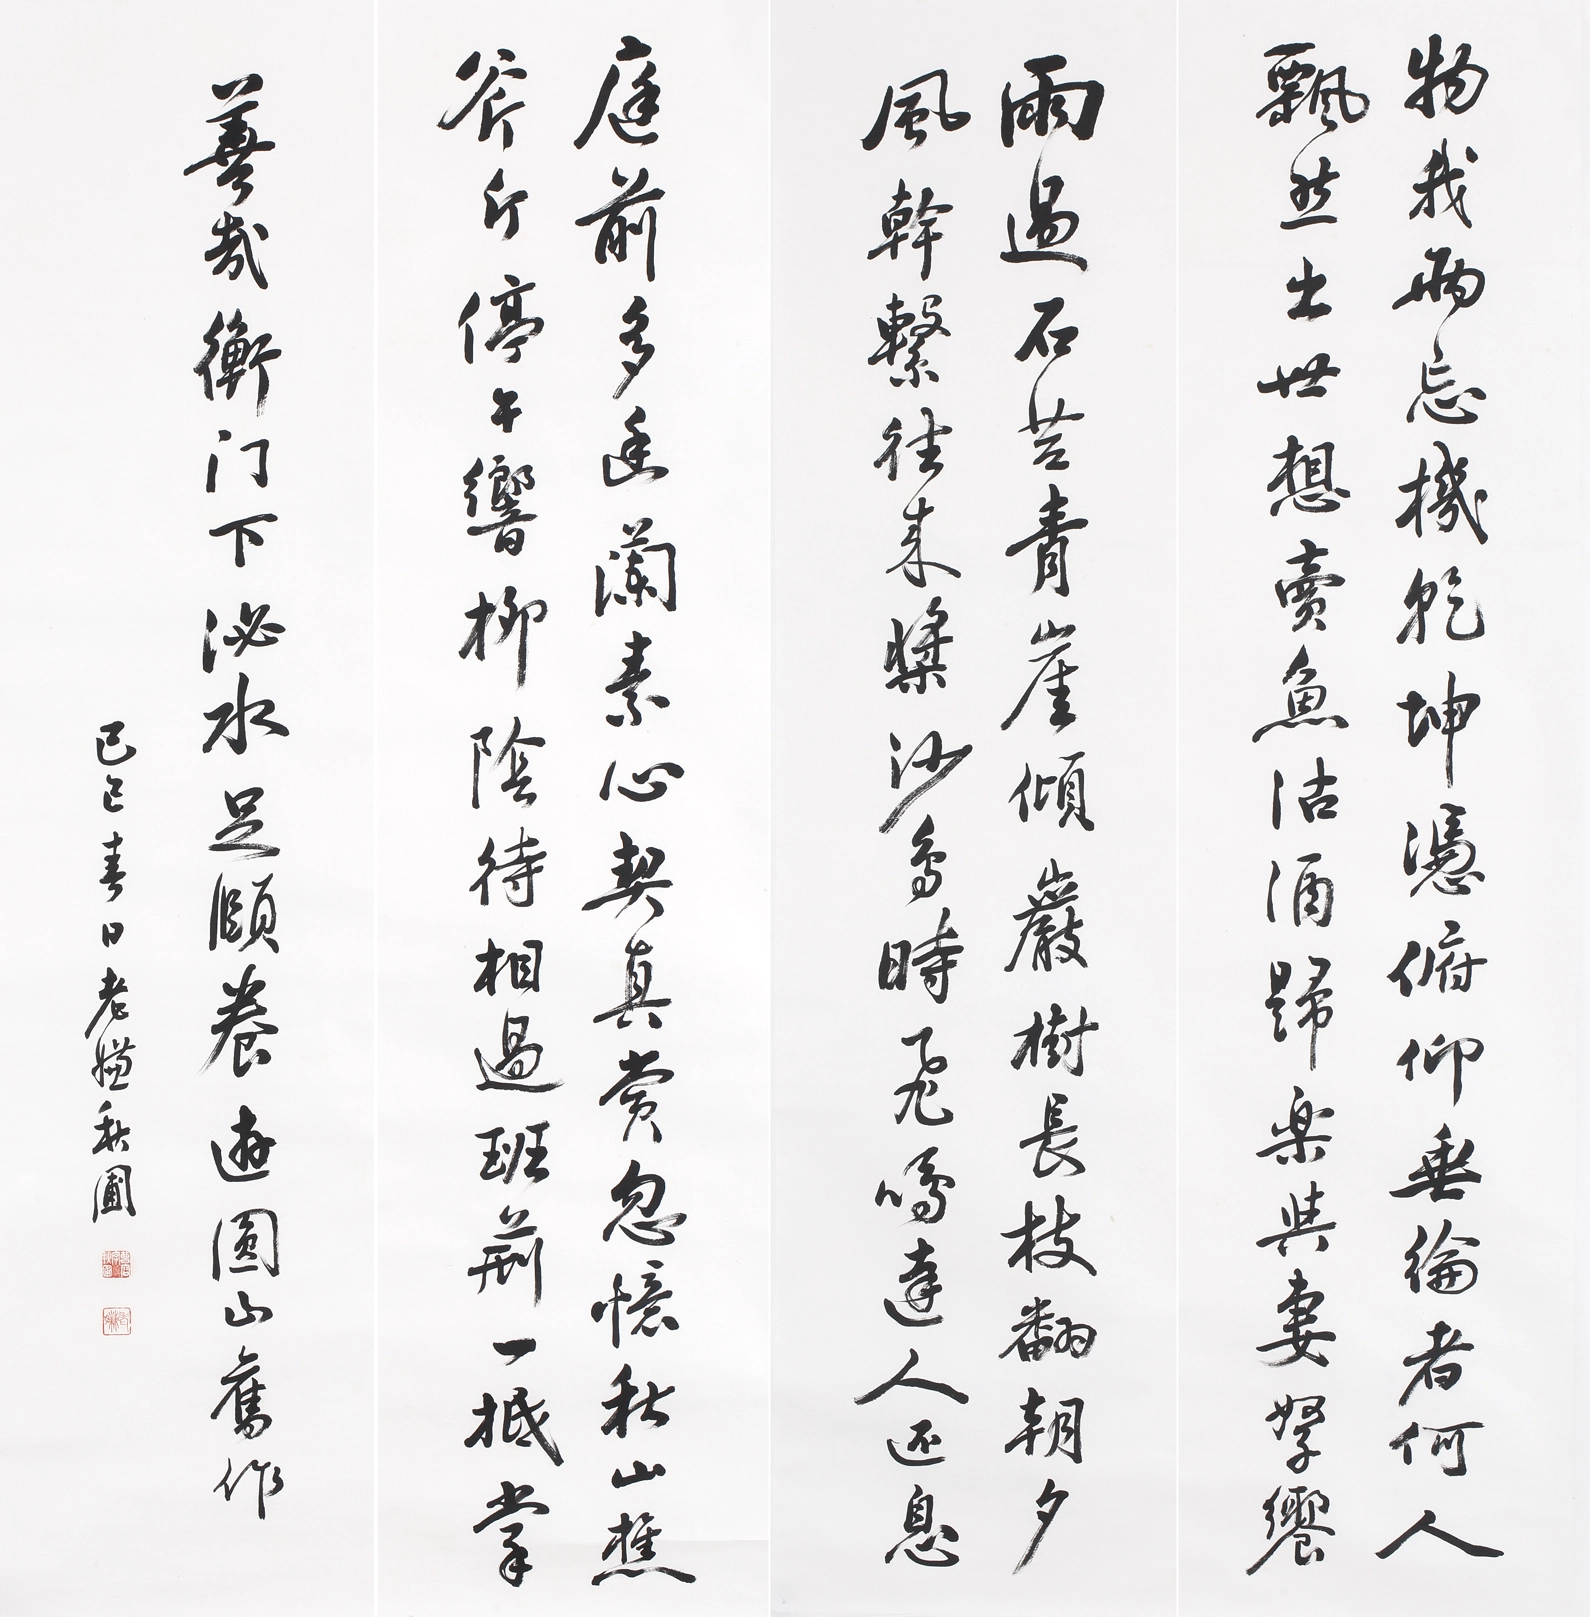 物我兩忘機乾坤憑俯仰垂綸者何人
飄然出世想賣魚沽酒歸楽與妻孥饗
雨過石苔青崖傾巖樹長枝翻朝夕
風幹繫往来槳沙鳥時飛鳴達人還息
庭前多逕蘭素心契真賞忽憶秋山樵
斧斤停午響柳陰待相過班荊一抵掌
善哉衡门下泌水足頤養遊圓山舊作
己巳春日老嫌秋圃